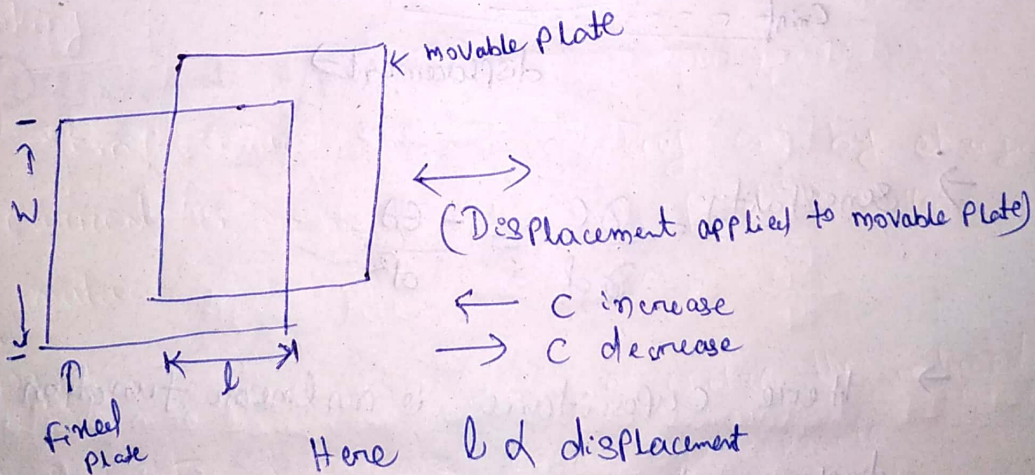 movable Plate
W
(Displacement applied to movable Plate)
← C increase
→ C decrease
l
fixed
Plate
Here l α displacement